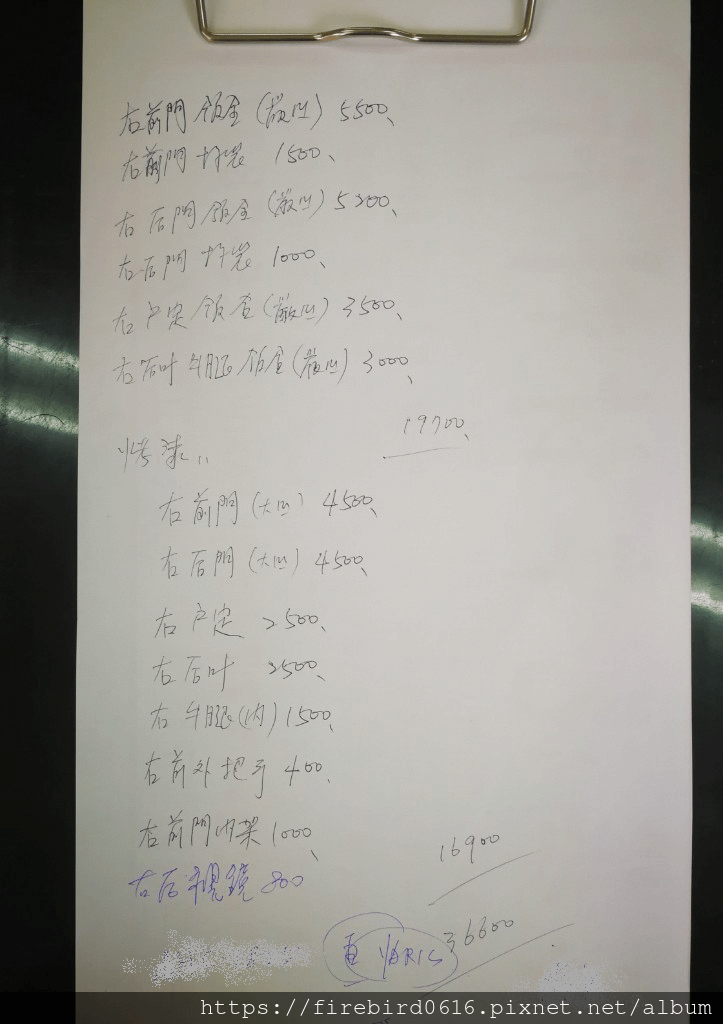 右前門 鈑金(嚴凹) 5500、
右前門 拆裝 1500、
右后門 鈑金(嚴凹) 5200、
右后門 拆裝 1000、
右戶定 鈑金(嚴凹) 3500、
右后叶 牛腿 鈑金(嚴凹) 3000、
19700、
烤漆:
右前門(大凹) 4500、
右后門(大凹) 4500、
右戶定 2500、
右后叶 2500、
右牛腿(内) 1500、
右前外把手 400、
右前門内架 1000、
右后視鏡 800
16900
YARIS 36600
https://firebird0616.pixnet.net/album